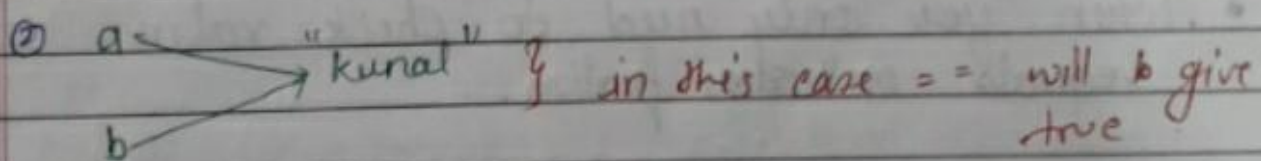 ② a "kunal" } in this case == will b give
b true